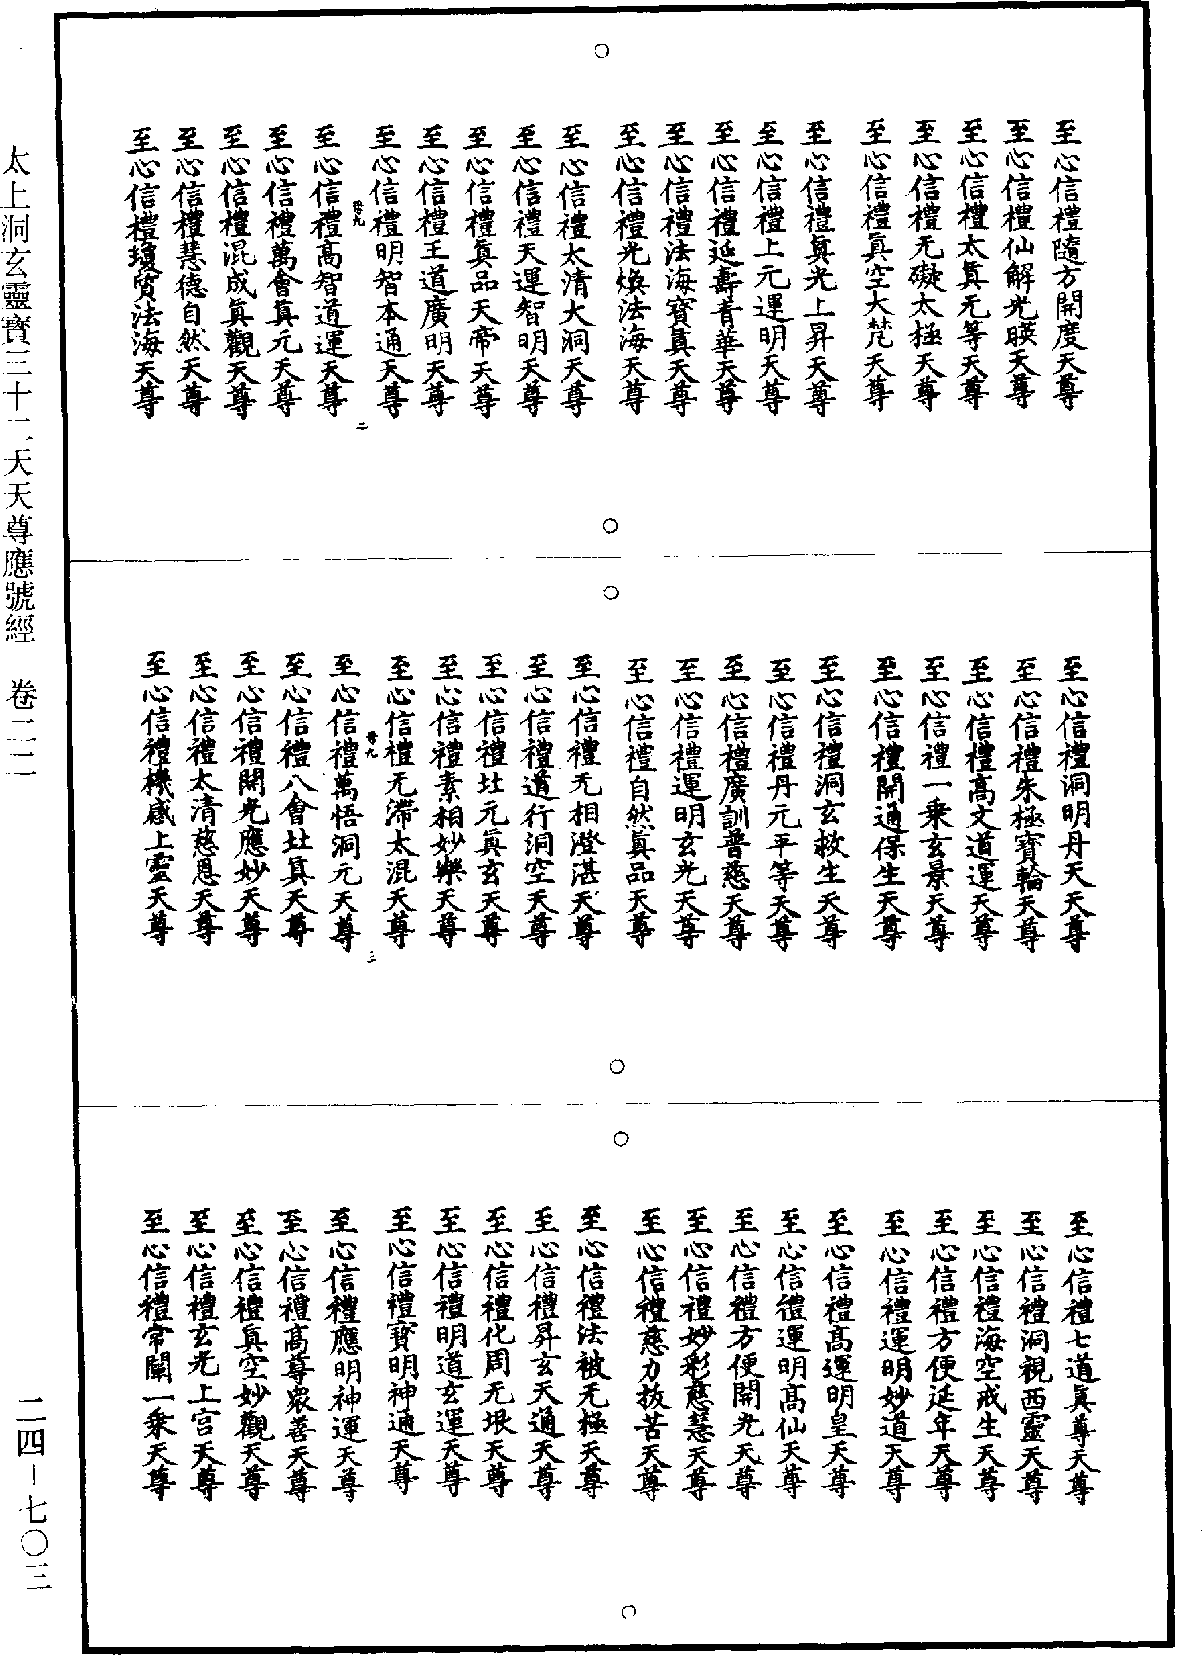 至心信禮隨方開度天尊
至心信禮仙解光暎天尊
至心信禮太真无等天尊
至心信禮无礙太極天尊
至心信禮真空大梵天尊
至心信禮真光上昇天尊
至心信禮上元運明天尊
至心信禮延壽青華天尊
至心信禮法海寶真天尊
至心信禮光煥法海天尊
至心信禮太清大洞天尊
至心信禮天運智明天尊
至心信禮真品天帝天尊
至心信禮王道廣明天尊
至心信禮明智本通天尊
二
至心信禮高智道運天尊
至心信禮萬會真元天尊
至心信禮混成真觀天尊
至心信禮慧德自然天尊
至心信禮瓊質法海天尊
至心信禮洞明丹天天尊
至心信禮朱極寶輪天尊
至心信禮高文道運天尊
至心信禮一乘玄景天尊
至心信禮開通保生天尊
至心信禮洞玄救生天尊
至心信禮丹元平等天尊
至心信禮廣訓普慈天尊
至心信禮運明玄光天尊
至心信禮自然真品天尊
至心信禮无相澄湛天尊
至心信禮道行洞空天尊
至心信禮壯元真玄天尊
至心信禮素相妙樂天尊
至心信禮无滯太混天尊
三
至心信禮萬悟洞元天尊
至心信禮八會壯真天尊
至心信禮開光應妙天尊
至心信禮太清慈恩天尊
至心信禮機感上靈天尊
至心信禮七道真尊天尊
至心信禮洞視西靈天尊
至心信禮海空戒生天尊
至心信禮方便延年天尊
至心信禮運明妙道天尊
至心信禮高運明皇天尊
至心信禮運明高仙天尊
至心信禮方便開光天尊
至心信禮妙彩慈慧天尊
至心信禮慈力拔苦天尊
至心信禮法被无極天尊
至心信禮昇玄天通天尊
至心信禮化周无垠天尊
至心信禮明道玄運天尊
至心信禮寶明神通天尊
至心信禮應明神運天尊
至心信禮高尊衆善天尊
至心信禮真空妙觀天尊
至心信禮玄光上宫天尊
至心信禮常闡一乘天尊
太上洞玄靈寶三十二天天尊應號經　卷二二
二四－七〇三